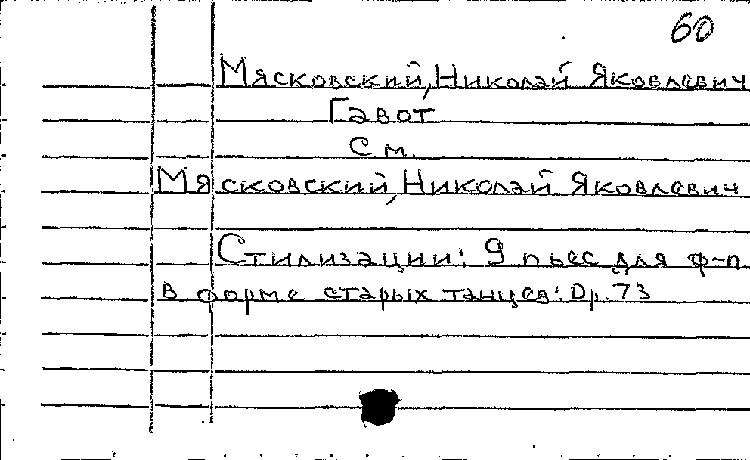 60
Мясковский, Николай Яковлевич
Гавот
см.
Мясковский, Николай Яковлевич
Стилизации: 9 пьес для ф-п
в форме старых танцев: Op. 73